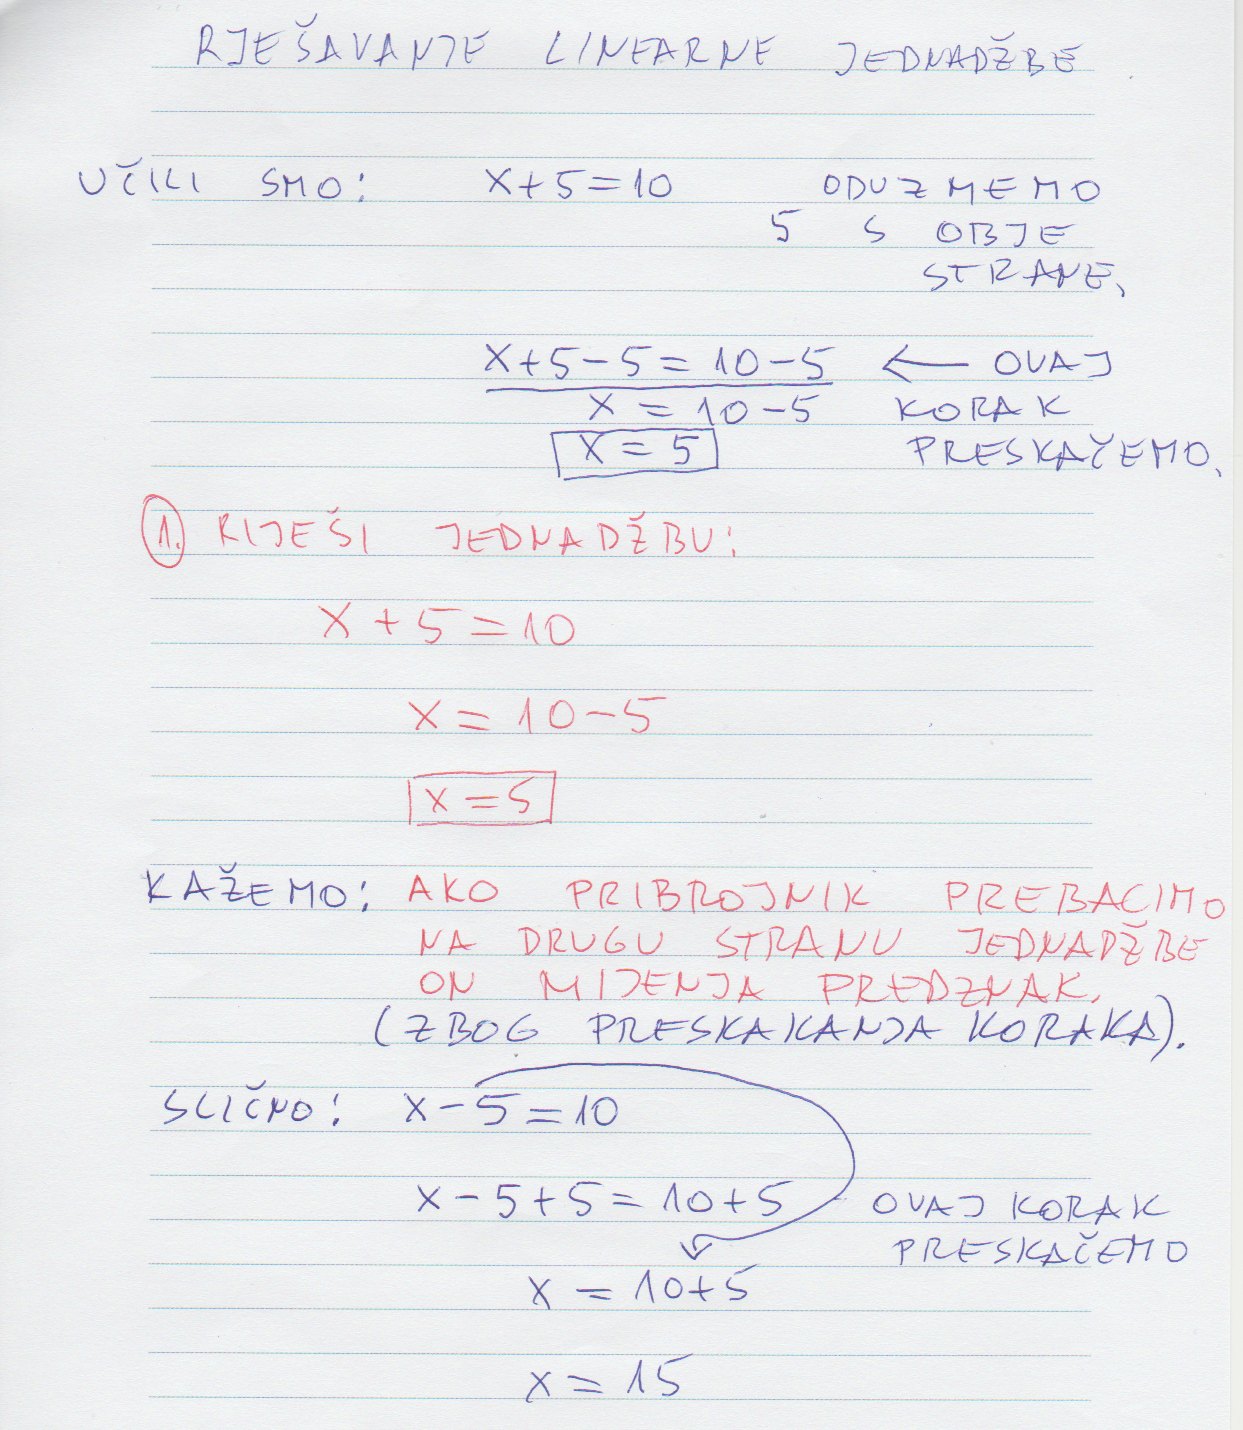 RJEŠAVANJE LINEARNE JEDNADŽBE
UČILI SMO: x+5=10 ODUZMEMO
5 S OBJE
STRANE.
x+5-5=10-5 ← OVAJ
x=10-5 KORAK
x=5 PRESKAČEMO.
1. RIJEŠI JEDNADŽBU:
x+5=10
x=10-5
x=5
KAŽEMO: AKO PRIBROJNIK PREBACIMO
NA DRUGU STRANU JEDNADŽBE
ON MIJENJA PREDZNAK.
(ZBOG PRESKAKANJA KORAKA).
SLIČNO: x-5=10
x-5+5=10+5 - OVAJ KORAK
PRESKAČEMO
x=10+5
x=15